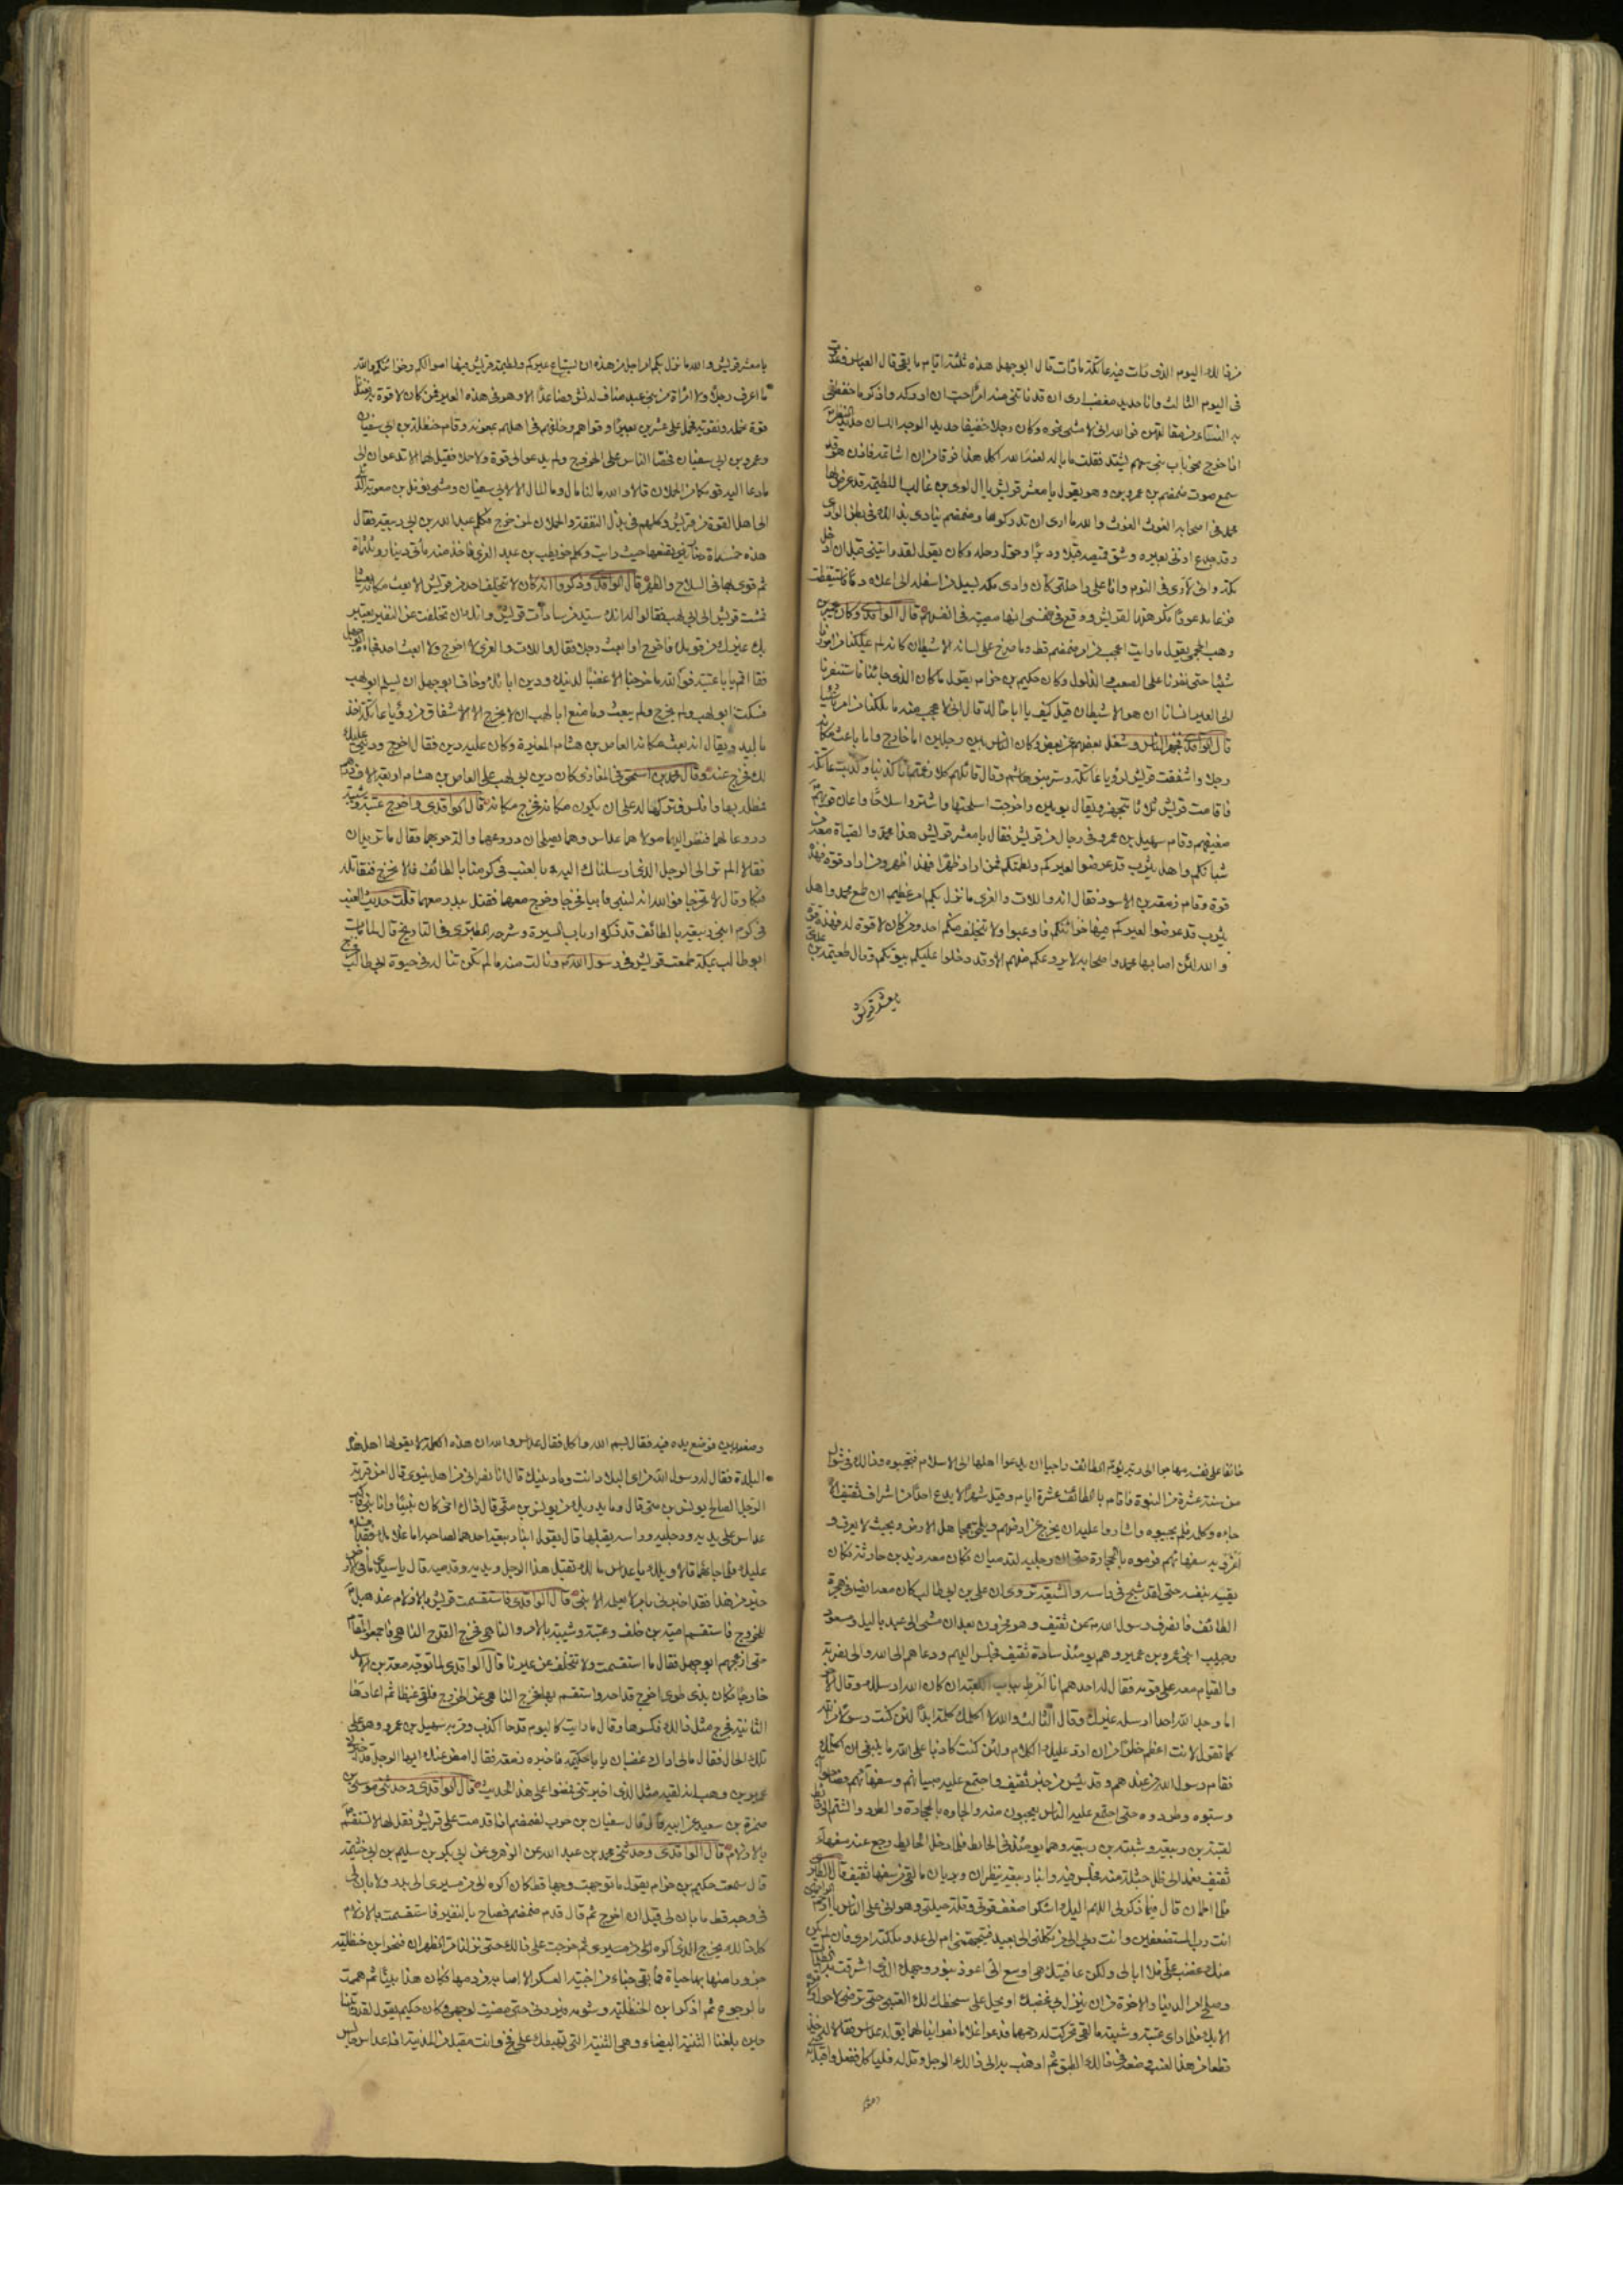 من فالله اليوم الذى مات فيه عاتكة ما قات قال ابو جهل هذه ثلثة ايام ما بقى قال العباس
فى اليوم الثالث وانا حديد مغضب ارى ان قد فاتنى منه امرا احب ان ادركه واذكر ما
به النساء من مقالتهن فوالله انى لامشى نحوه وكان رجلا خفيفا حديد الوجه حديد اللسان حديد النظر
اذا خرج نحو باب بنى سهم يشتد فقلت ما باله لعنه الله اكل هذا فرقا من ان اشاتمه فاذا هو قد
سمع صوت ضمضم بن عمرو وهو يقول يا معشر قريش يا ال لوى بن غالب اللطيمة قد عرض لها
محمد فى اصحابه الغوث الغوث والله ما ارى ان تدركوها وضمضم ينادى بذلك فى بطن الوادى
وقد جدع اذنى بعيره وشق قميصه قبلا ودبرا وحول رحله وكان يقول لقد رايتنى قبل ان ادخل
مكة وانى لارى فى النوم وانا على راحلتى كان وادى مكة يسيل من اسفله الى اعلاه دما فاستيقظت
فزعا مذعورا فكرهتها لقريش ووقع فى نفسى انها مصيبة فى انفسهم قال الواقدى وكان عمير بن
وهب الجمحى يقول ما رايت اعجب من امر ضمضم قط وما صرخ على لسانه الا شيطان كانه لم يملكنا من امورنا
شيئا حتى نفرنا على الصعب والذلول وكان حكيم بن حزام يقول ما كان الذى جاءنا فاستنفرنا
الى العير انسانا ان هو الا شيطان قيل كيف يا ابا خالد قال انى لاعجب منه ما ملكنا من امرنا شيئا
قال الواقدى فجهز الناس وشغل بعضهم عن بعض وكان الناس بين رجلين اما خارج واما باعث مكانه
رجلا واشفقت قريش لرؤيا عاتكة وسر بنو هاشم وقال قائلهم كلا زعمتم انا كذبنا وكذبت عاتكة
فاقامت قريش ثلاثا تتجهز ويقال يومين واخرجت اسلحتها واشتروا سلاحا واعان قويهم
ضعيفهم وقام سهيل بن عمرو فى رجال من قريش فقال يا معشر قريش هذا محمد والصباة معه من
شبانكم واهل يثرب قد عرضوا لعيركم ولطيمتكم فمن اراد ظهرا فهذا ظهر ومن اراد قوة فهذه
قوة وقام زمعة بن الاسود فقال انه واللات والعزى ما نزل بكم امر عظيم ان طمع محمد واهل
يثرب قد عرضوا لعيركم فيها خزائنكم فاوعبوا ولا يتخلف منكم احد ومن كان لا قوة له فهذه قوة
والله لئن اصابها محمد واصحابه لا يروعكم منهم الا وقد دخلوا عليكم بيوتكم وقال طعيمة بن عدى
يا معشر قريش
يا معشر قريش والله ما نزل بكم امر اجل من هذه ان يستباح عيركم ولطيمة قريش فيها اموالكم وخزائنكم والله
ما اعرف رجلا ولا امراة من بنى عبد مناف له نش فصاعدا الا وهو فى هذه العير فمن كان لا قوة به فعندنا
قوة نحمله ونقويه فحمل على عشرين بعيرا وقواهم وخلفهم فى اهلهم بمعونة وقام حنظلة بن ابى سفيان
وعمرو بن ابى سفيان فحضا الناس على الخروج ولم يدعوا الى قوة ولا حملان فقيل لهما الا تدعوان الى
ما دعا اليه قومكما من الحملان قالا والله ما لنا مال وما المال الا لابى سفيان ومشى نوفل بن معوية الديلى
الى اهل القوة من قريش وكلمهم فى بذل النفقة والحملان لمن خرج فكلم عبد الله بن ابى ربيعة فقال
هذه خمسماة دينار فضعها حيث رايت وكلم حويطب بن عبد العزى فاخذ منه مأتى دينار وثلثماة
ثم قوى بها فى السلاح والظهر قال الواقدى وذكروا انه كان لا يتخلف احد من قريش الا بعث مكانه بعيثا
فمشت قريش الى ابى لهب فقالوا له انك سيد من سادات قريش وانك ان تخلفت عن النفير يعتبر
بك غيرك من قومك فاخرج او ابعث رجلا فقال واللات والعزى لا اخرج ولا ابعث احدا فجاءه ابو جهل
فقال قم يا ابا عتبة فوالله ما خرجنا الا غضبا لدينك ودين ابائك وخاف ابو جهل ان يسلم ابو لهب
فسكت ابو لهب ولم يخرج ولم يبعث وما منع ابا لهب ان لا يخرج الا الاشفاق من رؤيا عاتكة
ويقال انه بعث مكانه العاص بن هشام المغيرة وكان عليه دين فقال اخرج ودينى عليك
لك فخرج عنه وقال محمد بن اسحق فى المغازى كان دين ابى لهب على العاص بن هشام اربعة الاف درهم
فمطله بها وافلس فتركها له على ان يكون مكانه فخرج مكانه قال الواقدى واخرج عتبة وشيبة
دروعا لهما فنظر اليهما مولاهما عداس وهما يصلحان دروعهما والة حربهما فقال ما تريدان
فقالا الم تر الى الرجل الذى ارسلناك اليه بالعنب فى كرمنا بالطائف قالا نخرج فنقاتله
فبكى وقال لا تخرجا فوالله انه لنبى فأبيا فخرجا وخرج معهما فقتل ببدر معهما قلت حديث العنب
فى كرم ابنى ربيعة بالطائف قد ذكره ارباب السيرة وشرحه الطبرى فى التاريخ قال لما مات
ابو طالب بمكة طمعت قريش فى رسول الله ص ونالت منه ما لم تكن تنال له فى حيوة ابى طالب فخرج
خائفا على نفسه مهاجرا الى ربه يؤم الطائف راجيا ان يدعو اهلها الى الاسلام فيجيبوه وذلك فى شوال
من سنة عشرة من النبوة فاقام بالطائف عشرة ايام وقيل شهرا لا يدع احدا من اشراف ثقيف الا
جاءه وكلمه فلم يجيبوه واشاروا عليه ان يخرج عن ارضهم ويلحق بمجاهل الارض وبحيث لا يعرف و
اغروا به سفهائهم فرموه بالحجارة حتى ان رجليه لتدميان فكان معه زيد بن حارثة فكان
يقيه بنفسه حتى لقد شج فى راسه والشيعة تروى ان على بن ابى طالب كان معه ايضا فى هجرة
الطائف فانصرف رسول الله ص عن ثقيف وهو محزون بعد ان مشى الى عبد ياليل ومسعود
وحبيب ابنى عمرو بن عمير وهم يومئذ سادة ثقيف فجلس اليهم ودعاهم الى الله والى نصرته
والقيام معه على قومه فقال له احدهم انا امرط بباب الكعبة ان كان الله ارسلك وقال الاخر
اما وجد الله احدا ارسله غيرك وقال الثالث والله لا اكلمك كلمة ابدا لئن كنت رسولا من الله
كما تقول لانت اعظم خطرا من ان ارد عليك الكلام ولئن كنت كاذبا على الله ما ينبغى ان اكلمك
فقام رسول الله من عندهم وقد يئس من خير ثقيف واجتمع عليه صبيانهم وسفهائهم فصاحوا به
وسبوه وطردوه حتى اجتمع عليه الناس يعجبون منه والجاوه بالحجارة والطرد والشتم الى حائط
لعتبة بن ربيعة وشيبة بن ربيعة وهما يومئذ فى الحائط فلما دخل الحائط رجع عنه سفهاء
ثقيف فعمد الى ظل حبلة منه فجلس فيه وابنا ربيعة ينظران ويريان ما لقى من سفهاء ثقيف قال الطبرى
فلما اطمان قال فيما ذكر لى اللهم اليك اشكو ضعف قوتى وقلة حيلتى وهوانى على الناس يا ارحم الراحمين
انت رب المستضعفين وانت ربى الى من تكلنى الى بعيد فيتجهمنى ام الى عدو ملكته امرى فان لم يكن
منك غضب على فلا ابالى ولكن عافيتك هى اوسع لى اعوذ بنور وجهك الذى اشرقت به الظلمات
وصلح امر الدنيا والاخرة من ان ينزل بى غضبك او يحل على سخطك لك العتبى حتى ترضى لا حول ولا قوة
الا بك فلما راى عتبة وشيبة ما لقى تحركت له رحمهما فدعوا غلاما نصرانيا لهما يقال له عداس فقالا له خذ
قطفا من هذا العنب وضعه فى ذلك الطبق ثم اذهب به الى ذلك الرجل وقل له فلياكل ففعل واقبل به
وضعه بين
وضعه بين يديه فوضع يده فيه فقال بسم الله واكل فقال عداس والله ان هذه الكلمة لا يقولها اهل هذه
البلدة فقال له رسول الله من اى البلاد انت وما دينك قال انا نصرانى من اهل نينوى قال امن قرية
الرجل الصالح يونس بن متى قال وما يدريك من يونس بن متى قال ذاك اخى كان نبيا وانا نبى فاكب
عداس على يديه ورجليه وراسه يقبلها قال يقول ابنا ربيعة احدهما لصاحبه اما غلامك فقد افسده
عليك فلما جاءهما قالا ويلك يا عداس ما لك تقبل هذا الرجل ويديه وقدميه قال يا سيدى ما فى الارض
خير من هذا فقد اخبرنى بامر لا يعلمه الا نبى قال الواقدى فاستقسمت قريش بالازلام عند هبل
للخروج فاستقسم امية بن خلف وعتبة وشيبة بالامر والناهى فخرج القدح الناهى فاجمعوا المقام
حتى ازعجهم ابو جهل فقال ما استقسمت ولا نتخلف عن عيرنا قال الواقدى لما توجه زمعة بن الاسود
خارجا فكان بذى طوى اخرج قداحه واستقسم بها فخرج الناهى عن الخروج فلقى غيظا ثم اعادها
الثانية فخرج مثل ذلك فكسرها وقال ما رايت كاليوم قدحا اكذب ومر به سهيل بن عمرو وهو على
تلك الحال فقال ما لى اراك غضبان يا ابا حكيمة فاخبره زمعة فقال امض عنك ايها الرجل قد اخبرنى
عمير بن وهب انه لقيه مثل الذى اخبرتنى فمضوا على هذا الحديث قال الواقدى وحدثنى موسى بن
ضمرة بن سعيد عن ابيه قال قال سفيان بن حرب لضمضم اذا قدمت على قريش فقل لها لا تستقسم
بالازلام قال الواقدى وحدثنى محمد بن عبد الله عن الزهرى عن ابى بكر بن سليم بن ابى حثمة
قال سمعت حكيم بن حزام يقول ما توجهت وجها قط كان اكره الى من مسيرى الى بدر ولا بان لى
فى وجه قط ما بان لى قبل ان اخرج ثم قال قدم ضمضم فصاح بالنفير فاستقسمت بالازلام
كل ذلك يخرج الذى اكره الى من مسيرى ثم خرجت على ذلك حتى نزلنا مر الظهران فنحر ابن حنظلية
جزورا منها بها حياة فما بقى خباء من اخبية العسكر الا اصابه من دمها فكان هذا بينا ثم هممت
بالرجوع ثم اذكر ابن الحنظلية وشومه فيردنى حتى مضيت لوجهى وكان حكيم يقول لقد راينا
حين بلغنا الثنية البيضاء وهى الثنية التى تهبطك على فخ وانت مقبل من المدينة اذا عداس جالس